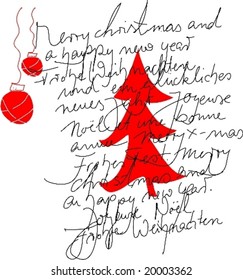 Merry christmas and
a happy new year
Frohe Weihnachten
und ein glückliches
neues Jahr Joyeuse
Noël et une bonne
année Merry x-mas
Frohes Fest merry
christmas and
a happy new year.
Joyeuse Noël
Frohe Weihnachten
shutterstock.com · 20003362